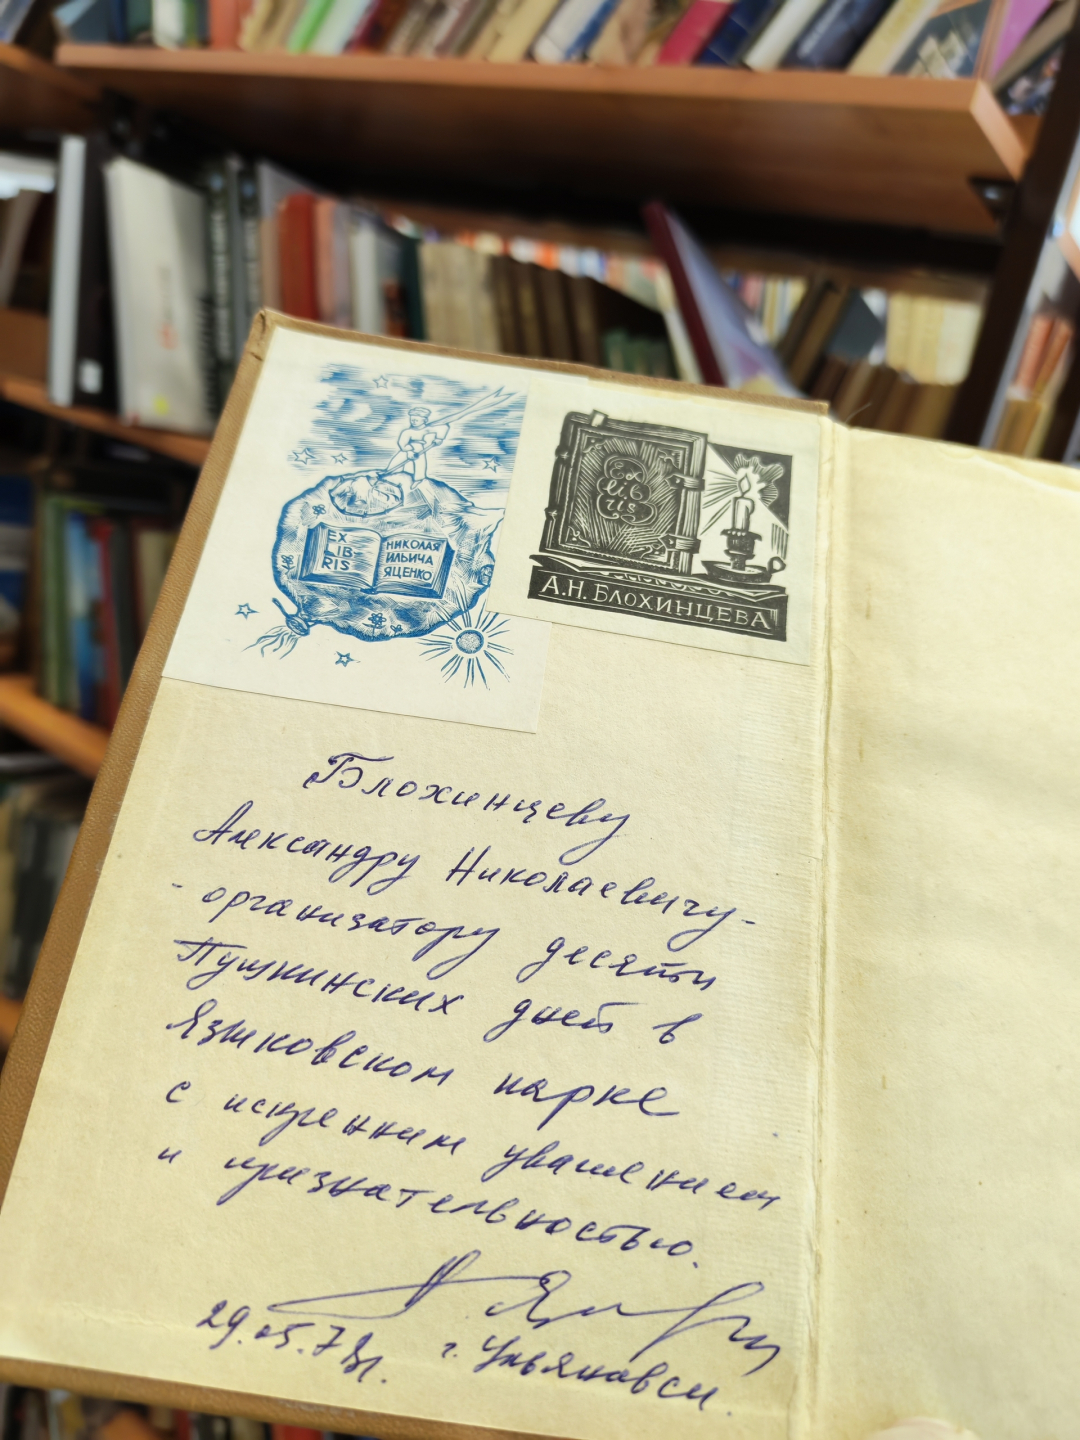 EX
LIB-
RIS
НИКОЛАЯ
ИЛЬИЧА
ЯЦЕНКО
EX
LIB
RIS
А.Н. БЛОХИНЦЕВА
Блохинцеву
Александру Николаевичу-
- организатору десяти
Пушкинских дней в
Языковском парке
с искренним уважением
и признательностью.
г. Ульяновск.